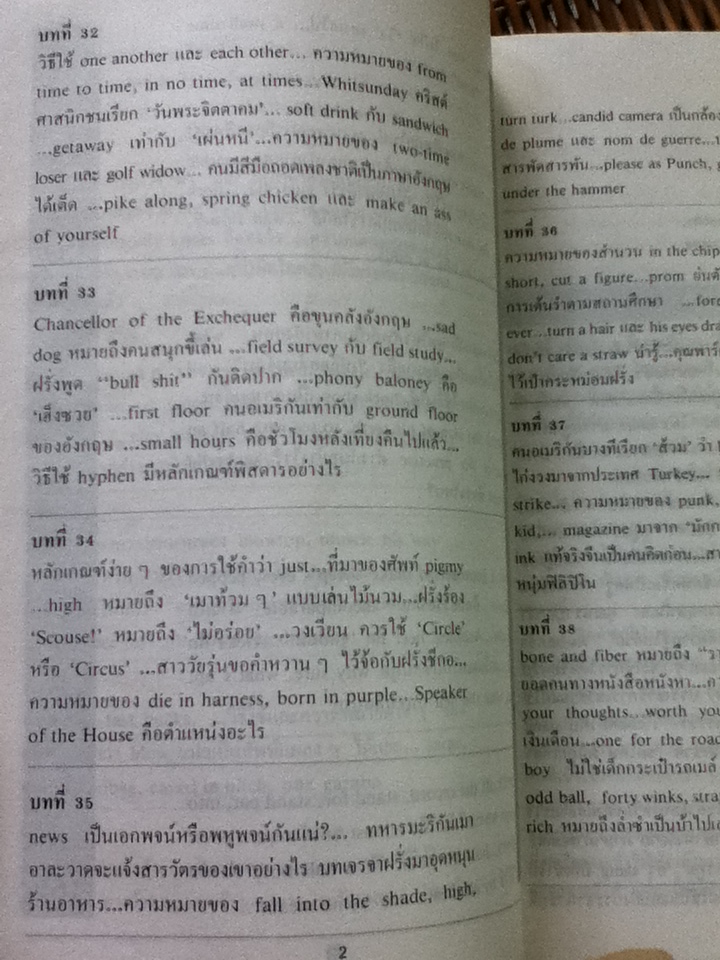 บทที่ 32
วิธีใช้ one another และ each other... ความหมายของ from
time to time, in no time, at times...Whitsunday คริสต์
ศาสนิกชนเรียก ‘วันพระจิตตาคม’... soft drink กับ sandwich
...getaway เท่ากับ ‘เผ่นหนี’...ความหมายของ two-time
loser และ golf widow... คนมีสีมือถอดเพลงชาติเป็นภาษาอังกฤษ
ได้เด็ด ...pike along, spring chicken และ make an ass
of yourself
บทที่ 33
Chancellor of the Exchequer คือขุนคลังอังกฤษ ...sad
dog หมายถึงคนสนุกขี้เล่น ...field survey กับ field study...
ฝรั่งพูด “bull shit” กันติดปาก ...phony baloney คือ
‘เฮ็งซวย’ ...first floor คนอเมริกันเท่ากับ ground floor
ของอังกฤษ ...small hours คือชั่วโมงหลังเที่ยงคืนไปแล้ว...
วิธีใช้ hyphen มีหลักเกณฑ์พิสดารอย่างไร
บทที่ 34
หลักเกณฑ์ง่าย ๆ ของการใช้คำว่า just...ที่มาของศัพท์ pigmy
...high หมายถึง ‘เมาท้วม ๆ’ แบบเล่นไม้นวม...ฝรั่งร้อง
‘Scouse!’ หมายถึง ‘ไม่อร่อย’ ...วงเวียน ควรใช้ ‘Circle’
หรือ ‘Circus’ ...สาววัยรุ่นขอคำหวาน ๆ ไว้จ้อกับฝรั่งชีกอ...
ความหมายของ die in harness, born in purple...Speaker
of the House คือตำแหน่งอะไร
บทที่ 35
news เป็นเอกพจน์หรือพหูพจน์กันแน่?... ทหารมะริกันเมา
อาละวาดจะแจ้งสารวัตรของเขาอย่างไร บทเจรจาฝรั่งมาอุดหนุน
ร้านอาหาร...ความหมายของ fall into the shade, high,
2
turn turk...candid camera เป็นกล้อง
de plume และ nom de guerre...
สารพัดสารพัน...please as Punch,
under the hammer
บทที่ 36
ความหมายของสำนวน in the chip
short, cut a figure...prom
การเต้นรำตามสถานศึกษา ...for
ever...turn a hair และ his eyes
don't care a straw น่ารู้...คุณพาร์
ไว้เป่ากระหม่อมฝรั่ง
บทที่ 37
คนอเมริกันบางทีเรียก ‘ส้วม’ ว่า
ไก่งวงมาจากประเทศ Turkey...
strike... ความหมายของ punk,
kid,... magazine มาจาก
ink แท้จริงจีนเป็นคนคิดก่อน...
หนุ่มฟิลิปิโน
บทที่ 38
bone and fiber หมายถึง
ยอดคนทางหนังสือหนังหา...
your thoughts...worth
เงินเดือน...one for the road
boy ไม่ใช่เด็กกระเป๋ารถเมล์
odd ball, forty winks,
rich หมายถึงล่ำซำเป็นบ้าไป